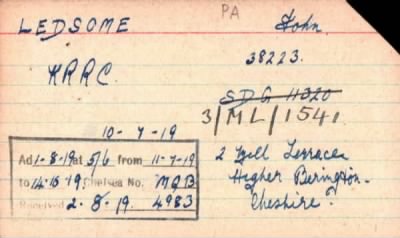 LEDSOME PA John.
38223.
KRRC.
SDG 11320
3/ML/1541
10-7-19
Ad 1-8-19 at 5/6 from 11-7-19
to 14-10-19. Chelsea No. MQB
Received 2-8-19. 4983
2 Terrace
Higher
Cheshire